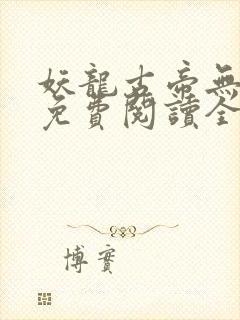 妖龍古帝無
免費閱讀全
博實